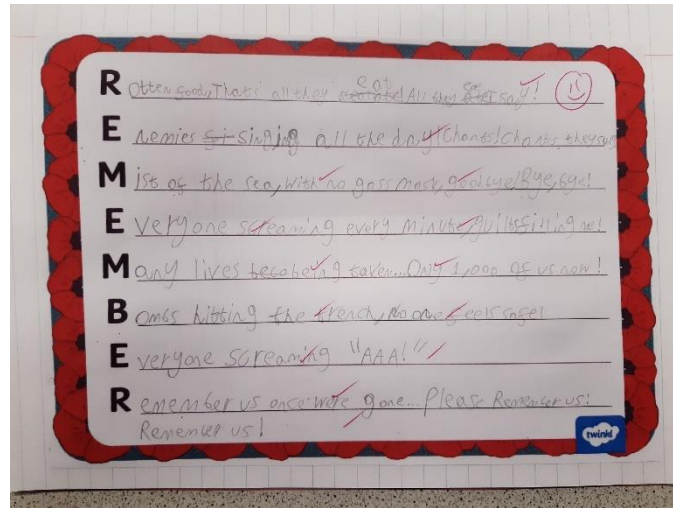 Rotten food, That's all they eat! All they eat say!
Enemies singing all the day! Chants! Chants, they sing
Mist of the sea, with no gass mask, goodbye! Bye, bye!
Everyone screaming every minute, guilt filling me!
Many lives being taken... Only 1,000 of us now!
Bombs hitting the trench, No one feels safe!
Everyone screaming "AAA!"
Remember us once were gone... Please Remember us!
Remember us!
twinkl